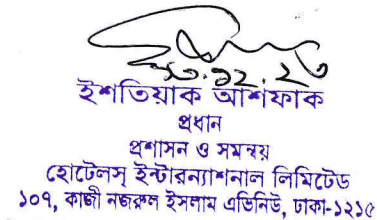 ৩০.১২.২৩
ইশতিয়াক আশফাক
প্রধান
প্রশাসন ও সমন্বয়
হোটেলস্ ইন্টারন্যাশনাল লিমিটেড
১০৭, কাজী নজরুল ইসলাম এভিনিউ, ঢাকা-১২১৫